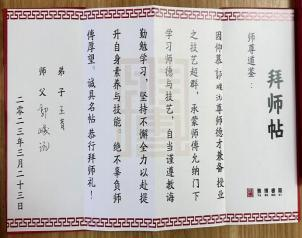 拜师帖
师尊道鉴：
因仰慕郭曦沩尊师德才兼备 授业
之技艺超群，承蒙师傅允纳门下
学习师德与技艺，自当谨遵教诲
勤勉学习，坚持不懈全力以赴提
升自身素养与技能，绝不辜负师
傅厚望，诚具名帖 恭行拜师礼！
弟子 王青
师父
二零二三年二月二十三日